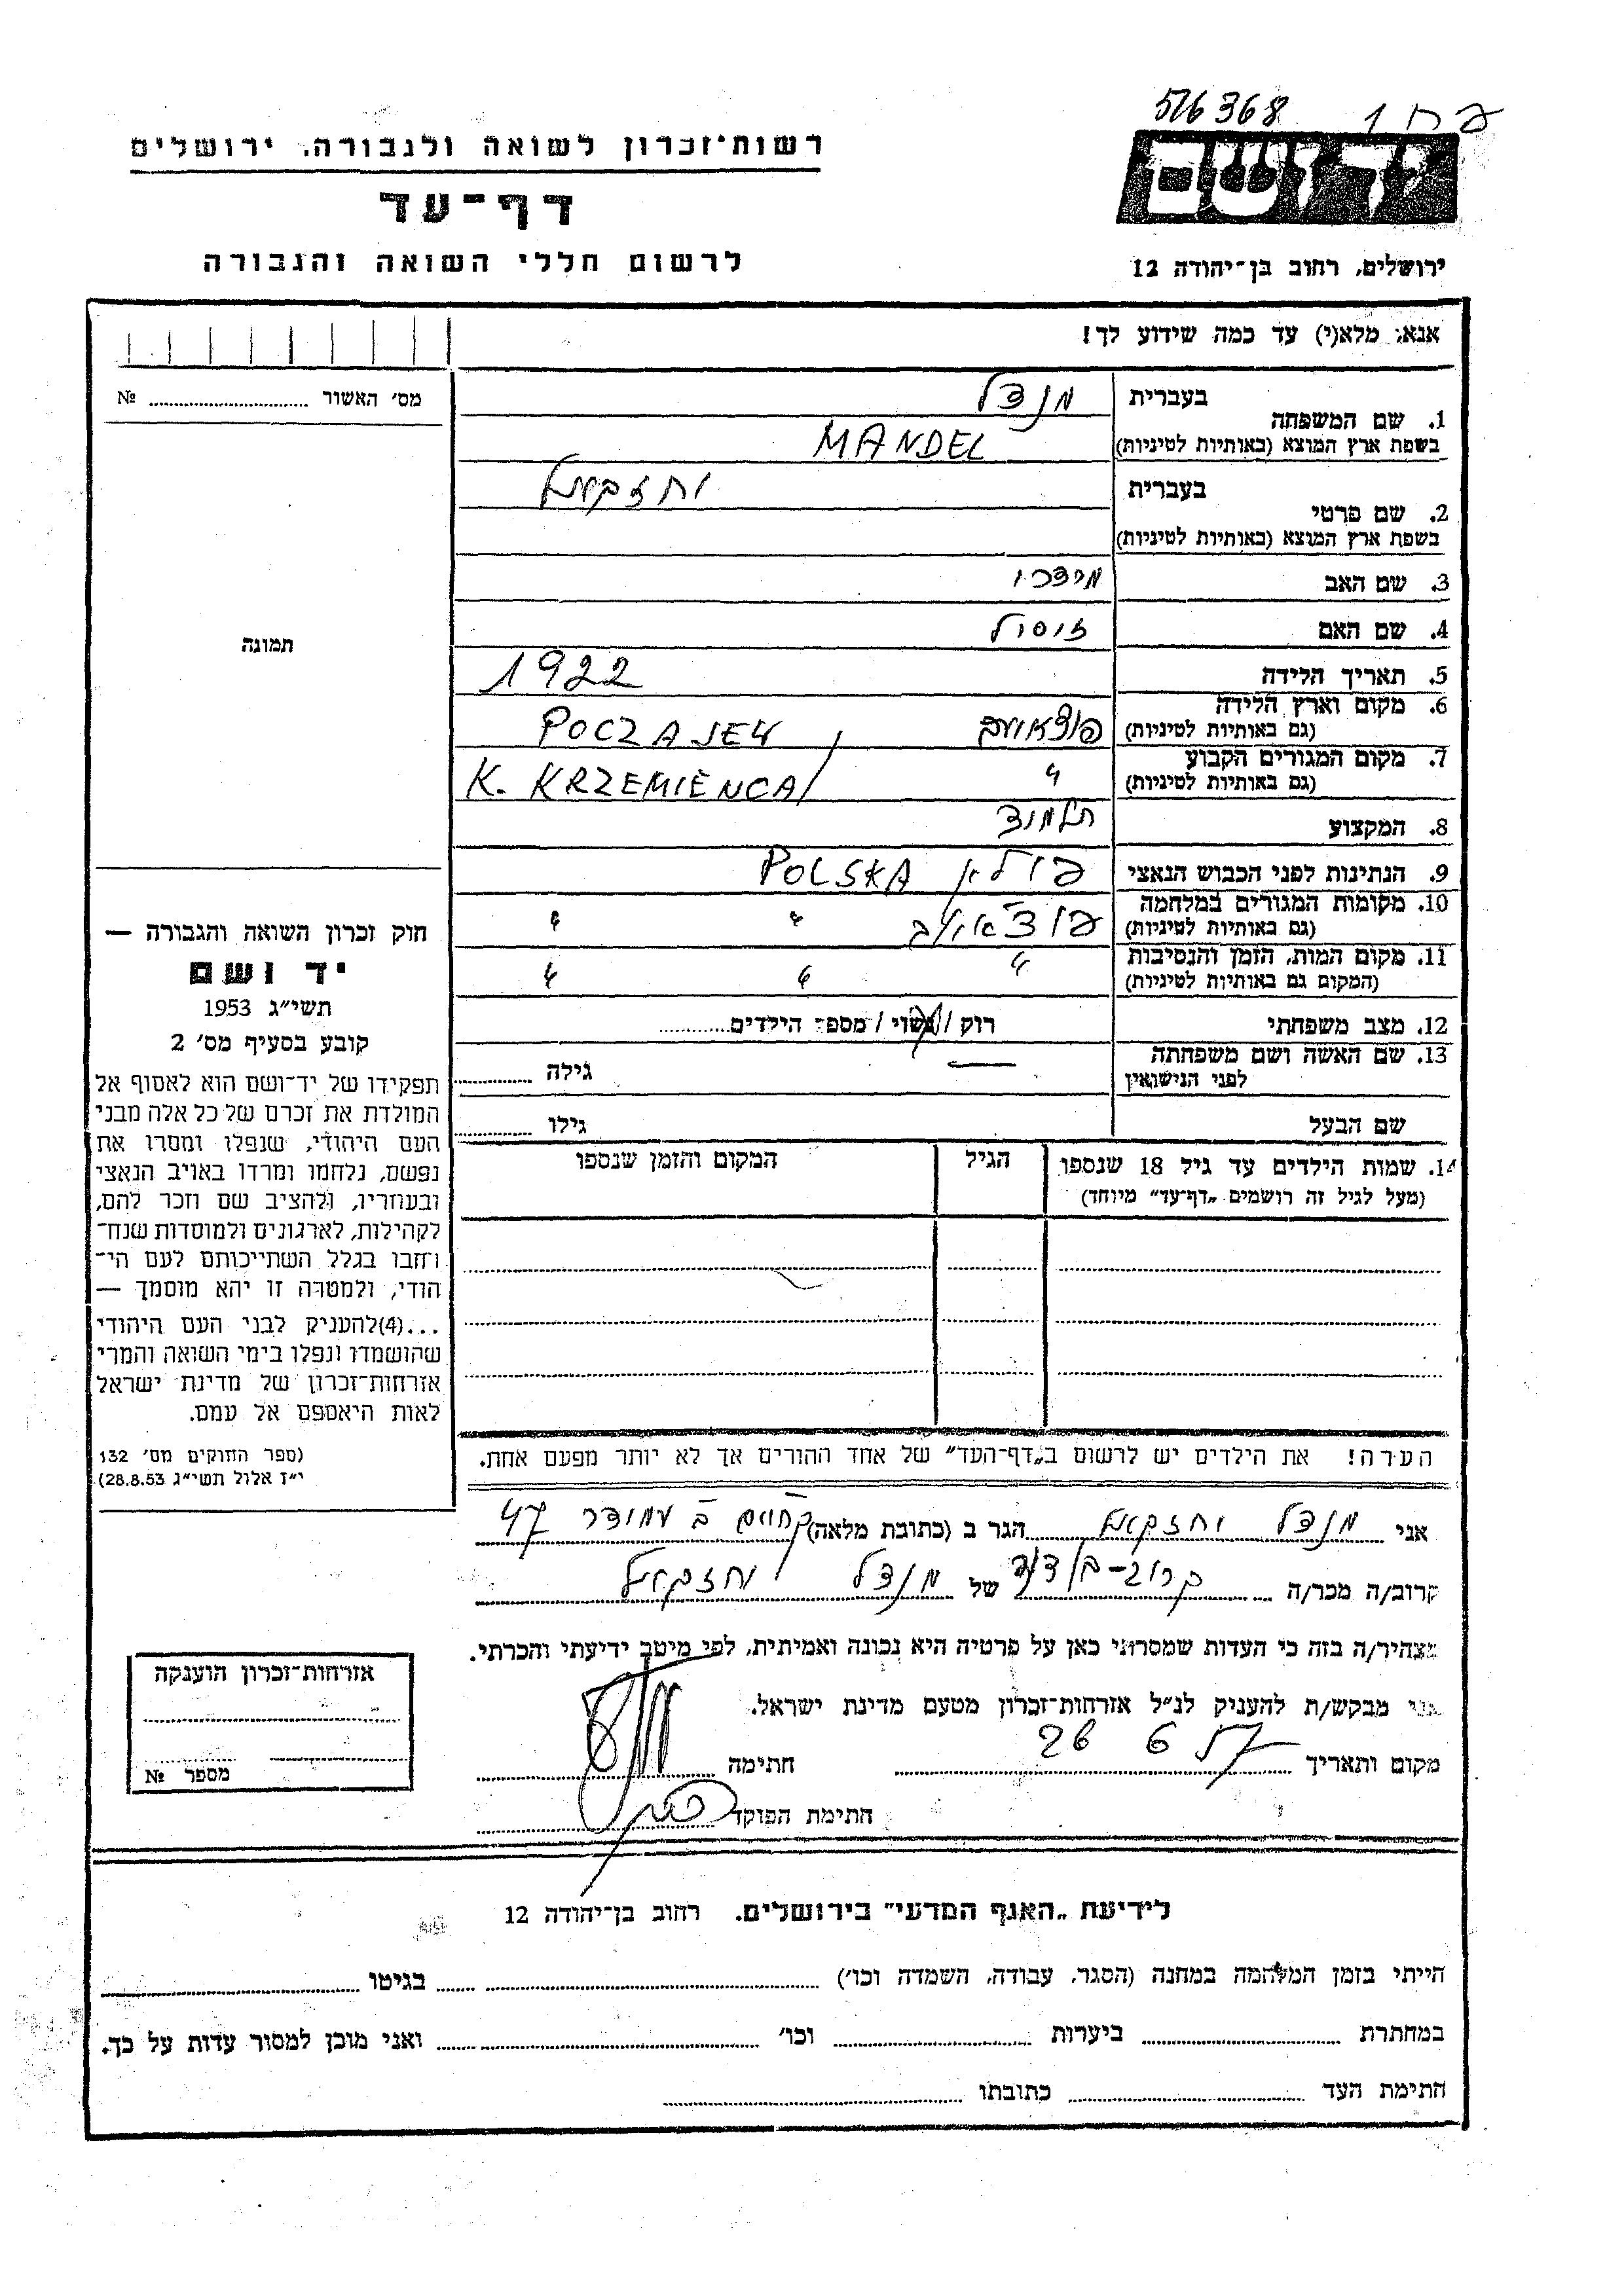 516368 פ ח 1
רשות־זכרון לשואה ולגבורה, ירושלים
יד ושם
דף־עד
לרשום חללי השואה והגבורה
ירושלים, רחוב בן־יהודה 12
אנא, מלא(י) עד כמה שידוע לך!
מס׳ האשור № 
1. שם המשפחה
בעברית מנדל
בשפת ארץ המוצא (באותיות לטיניות) MANDEL
2. שם פרטי
בעברית יחזקאל
בשפת ארץ המוצא (באותיות לטיניות)
3. שם האב מרדכי
4. שם האם זיסל
5. תאריך הלידה 1922
6. מקום וארץ הלידה
(גם באותיות לטיניות) POCZAJEW
7. מקום המגורים הקבוע
(גם באותיות לטיניות) " K. KRZEMIENCA
8. המקצוע תלמיד
9. הנתינות לפני הכבוש הנאצי פולין POLSKA
10. מקומות המגורים במלחמה
(גם באותיות לטיניות) " "
11. מקום המות, הזמן והנסיבות
(המקום גם באותיות לטיניות) " " "
12. מצב משפחתי רוק / נשוי / מספר הילדים
13. שם האשה ושם משפחתה
לפני הנישואין — גילה
שם הבעל גילו
14. שמות הילדים עד גיל 18 שנספו
(מעל לגיל זה רושמים „דף־עד” מיוחד)
הגיל
המקום והזמן שנספו
הערה! את הילדים יש לרשום ב„דף־העד” של אחד ההורים אך לא יותר מפעם אחת.
תמונה
חוק זכרון השואה והגבורה —
יד ושם
תשי״ג 1953
קובע בסעיף מס׳ 2
תפקידו של יד־ושם הוא לאסוף אל
המולדת את זכרם של כל אלה מבני
העם היהודי, שנפלו ומסרו את
נפשם, נלחמו ומרדו באויב הנאצי
ובעוזריו, ולהציב שם וזכר להם,
לקהילות, לארגונים ולמוסדות שנח־
רחבו בגלל השתייכותם לעם הי־
הודי, ולמטרה זו יהא מוסמך —
...(4)להעניק לבני העם היהודי
שהושמדו ונפלו בימי השואה והמרי
אזרחות־זכרון של מדינת ישראל
לאות היאספם אל עמם.
(ספר החוקים מס׳ 132
י״ז אלול תשי״ג 28.8.53)
אני מנדל יחזקאל הגר ב (כתובת מלאה) 47
קרוב/ה מכר/ה קרוב-בן דוד של מנדל יחזקאל
מצהיר/ה בזה כי העדות שמסרתי כאן על פרטיה היא נכונה ואמיתית, לפי מיטב ידיעתי והכרתי.
אני מבקש/ת להעניק לנ״ל אזרחות־זכרון מטעם מדינת ישראל.
מקום ותאריך חתימה
חתימת הפוקד
אזרחות־זכרון הוענקה
מספר №
לידיעת „האגף המדעי” בירושלים, רחוב בן־יהודה 12
הייתי בזמן המלחמה במחנה (הסגר, עבודה, השמדה וכו׳) בגיטו
במחתרת ביערות וכו׳ ואני מוכן למסור עדות על כך.
חתימת העד כתובתו